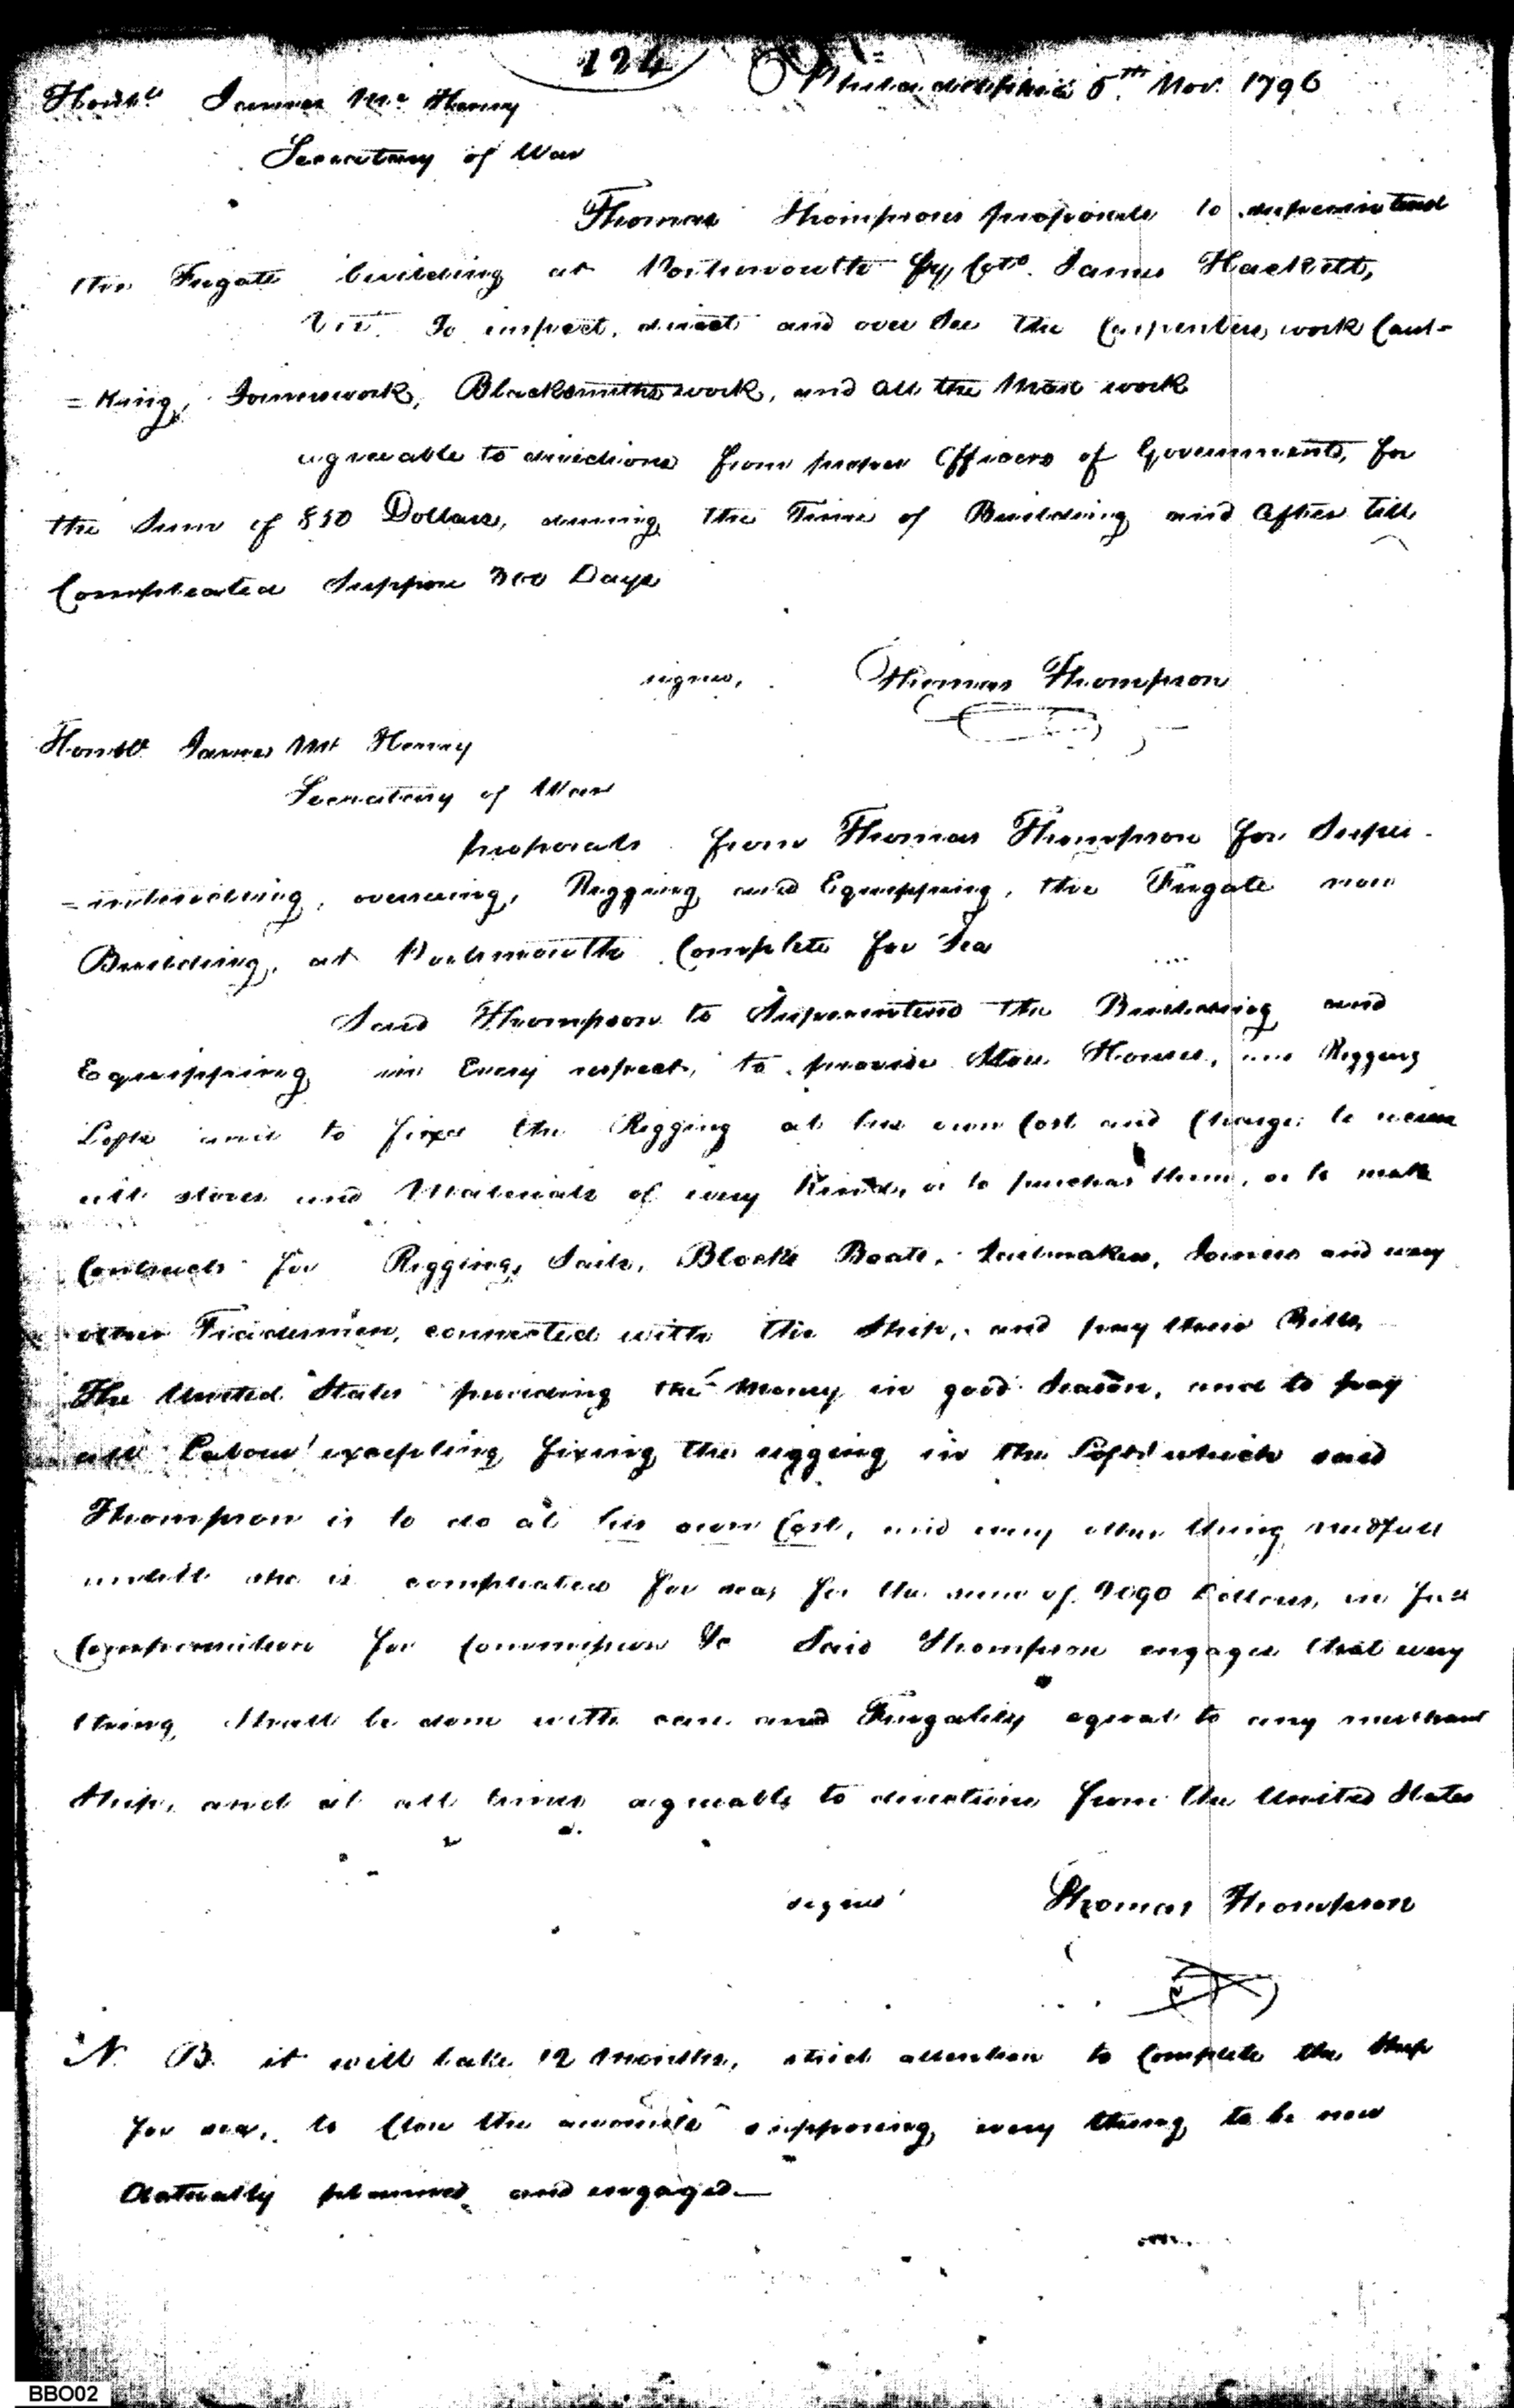 124
Philadelphia 5th Nov. 1796
Honble James Mc Henry
Secretary of War
Thomas Thompsons proposals to superintend
the Frigate building at Portsmouth by Colo. James Hackett,
Vizt. To inspect, direct and over See the Carpenters work Caul-
=king, Joinerswork, Blacksmiths work, and all the Mast work
agreeable to directions from proper Officers of Government, for
the Sum of 850 Dollars, during the Time of Building and After till
Compleated Suppose 300 Days
signed, Thomas Thompson
Honble James Mc Henry
Secretary of War
proposals from Thomas Thompson for Super-
=intending, overseeing, Rigging and Equipping, the Frigate now
Building, at Portsmouth Complete for Sea
Said Thompson to Superintend the Building and
Equipping in Every respect, to provide Store Houses, Rigging
Lofts and to fix the Rigging at his own Cost and Charge to receive
all stores and Materials of every kind, or to purchas them, or to make
Contracts for Rigging, Sails, Blocks Boats, Sailmakers, Joiners and every
other Tradesmen, connected with the Ship, and pay their Bills
The United States providing the Money in good Season, and to pay
all Labour excepting fixing the rigging in the Lofts which said
Thompson is to do at his own Cost, and every other thing needfull
untill she is compleated for sea, for the sum of Dollars, in full
Compensation for Commissions &c Said Thompson engages that every
thing shall be done with care and Frugality equal to any merchant
Ship, and at all times agreeable to directions from the United States
signed Thomas Thompson
N. B. it will take 12 Months, strict attention to Complete the Ship
for sea, to Close the accounts supposing every thing to be now
Actually planned and engaged—
BBO02